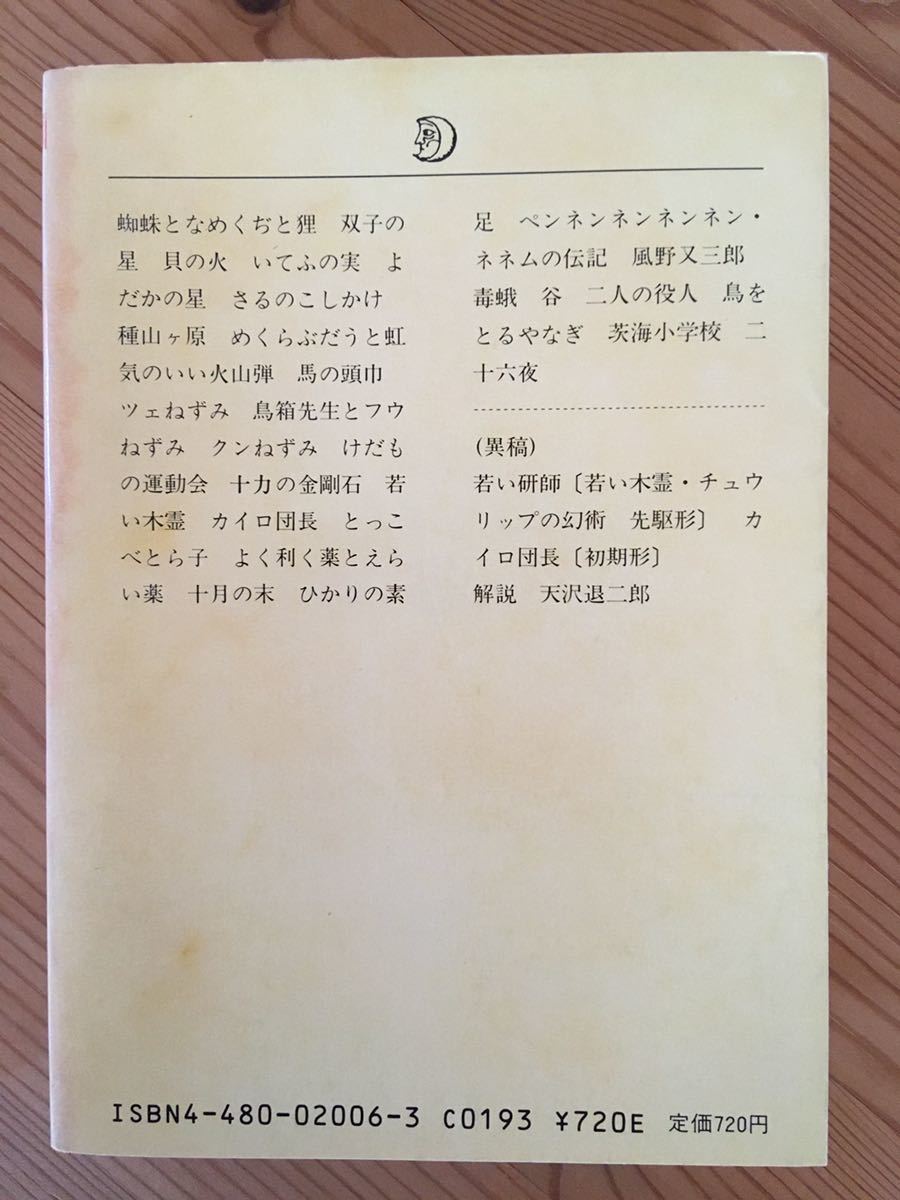 蜘蛛となめくぢと狸　双子の
星　貝の火　いてふの実　よ
だかの星　さるのこしかけ
種山ヶ原　めくらぶだうと虹
気のいい火山弾　馬の頭巾
ツェねずみ　鳥箱先生とフウ
ねずみ　クンねずみ　けだも
の運動会　十力の金剛石　若
い木霊　カイロ団長　とっこ
べとら子　よく利く薬とえら
い薬　十月の末　ひかりの素
足　ペンネンネンネンネン・
ネネムの伝記　風野又三郎
毒蛾　谷　二人の役人　鳥を
とるやなぎ　茨海小学校　二
十六夜
(異稿)
若い研師〔若い木霊・チュウ
リップの幻術　先駆形〕　カ
イロ団長〔初期形〕
解説　天沢退二郎
ISBN4-480-02006-3 C0193 ¥720E 定価720円